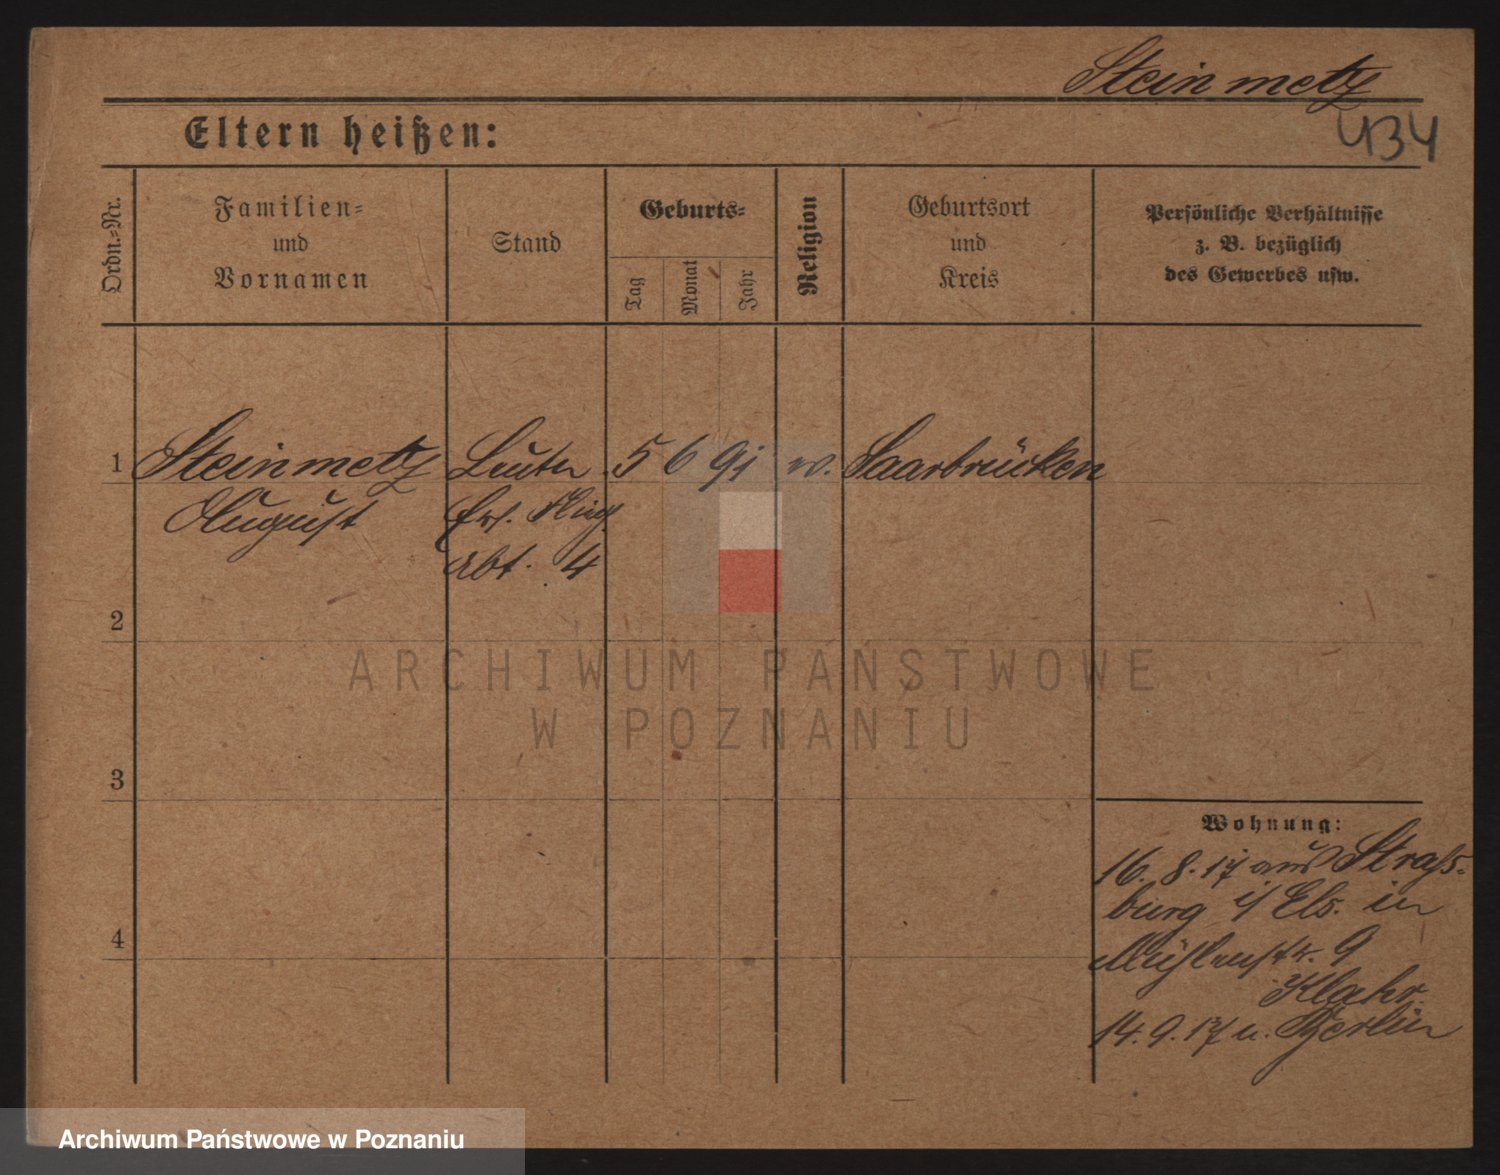 Steinmetz
434
Eltern heißen:
Ordn.-Nr.
Familien-
und
Vornamen
Stand
Geburts-
Tag
Monat
Jahr
Religion
Geburtsort
und
Kreis
Persönliche Verhältnisse
z. B. bezüglich
des Gewerbes usw.
1 Steinmetz 5 6 91 Saarbrücken
August Ers. Flieg.
Abt. 4
2
ARCHIWUM PAŃSTWOWE
W POZNANIU
3
Wohnung:
16. 8. 17 aus Strass-
burg i/ Els. in
4
Mühlenstr. 9
Klahr
14. 9. 17 n. Berlin
Archiwum Państwowe w Poznaniu